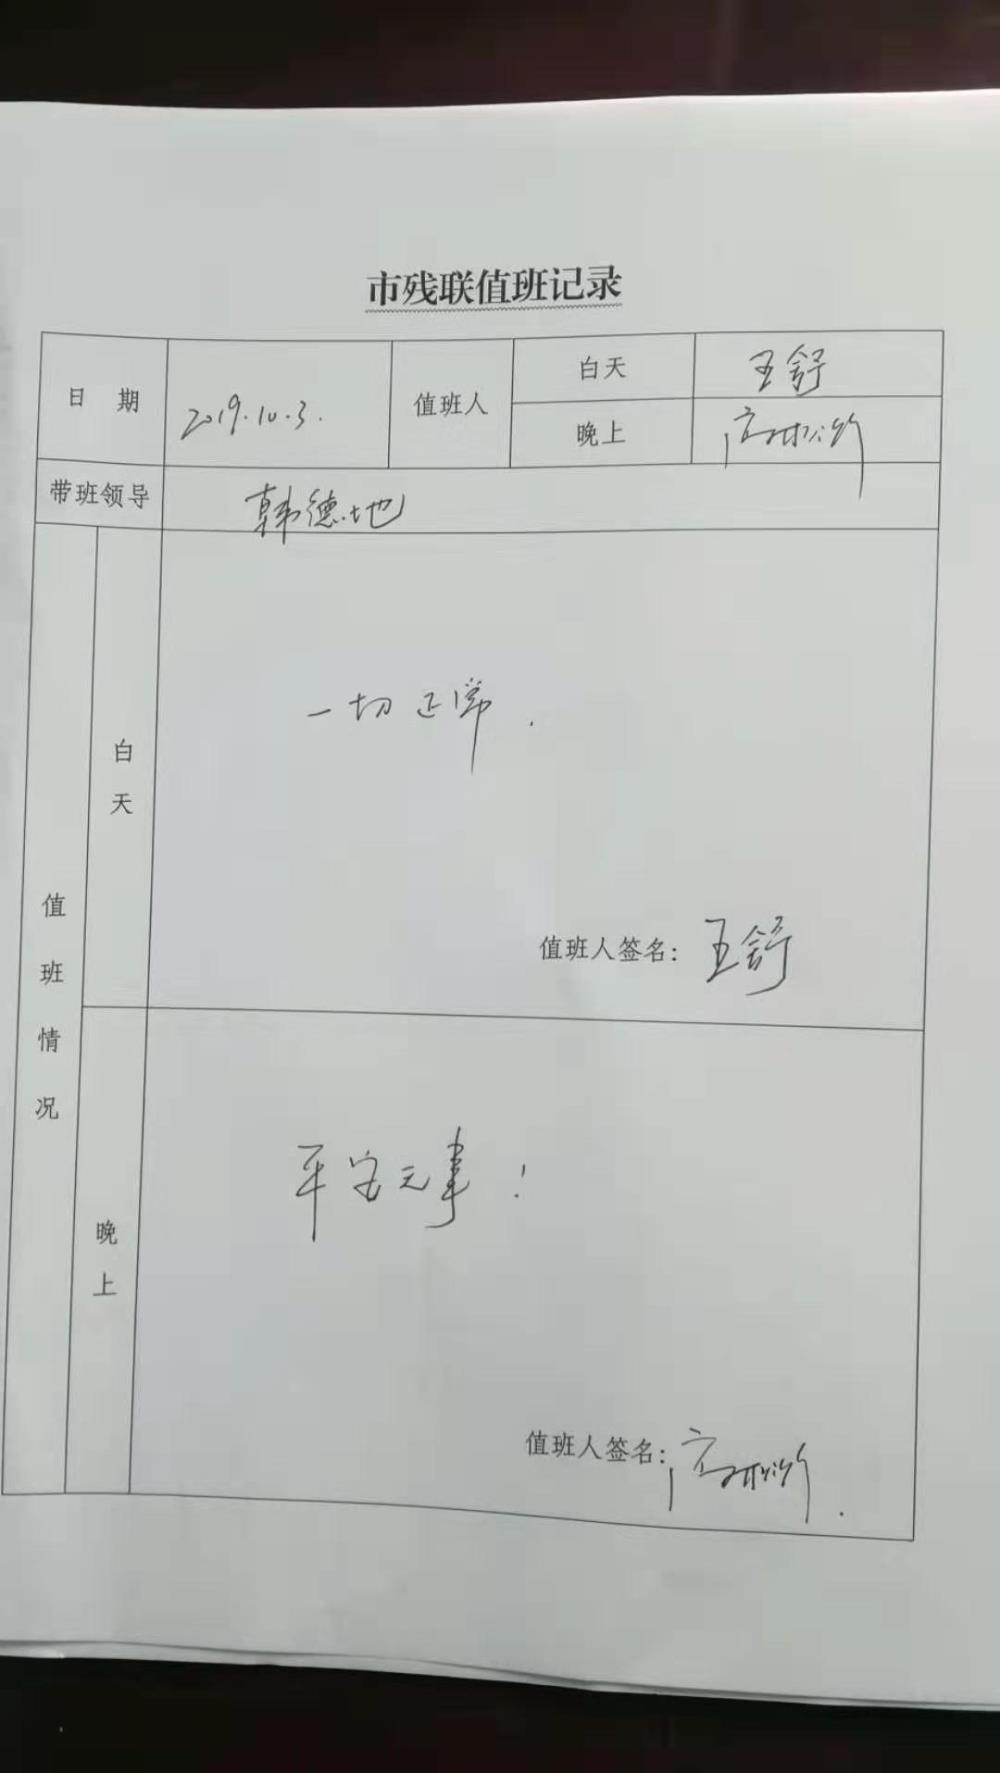 市残联值班记录
日 期 2019.10.3. 值班人 白天 王舒
晚上
带班领导 韩德地
值班情况
白天
一切正常.
值班人签名: 王舒
晚上
平安无事!
值班人签名: